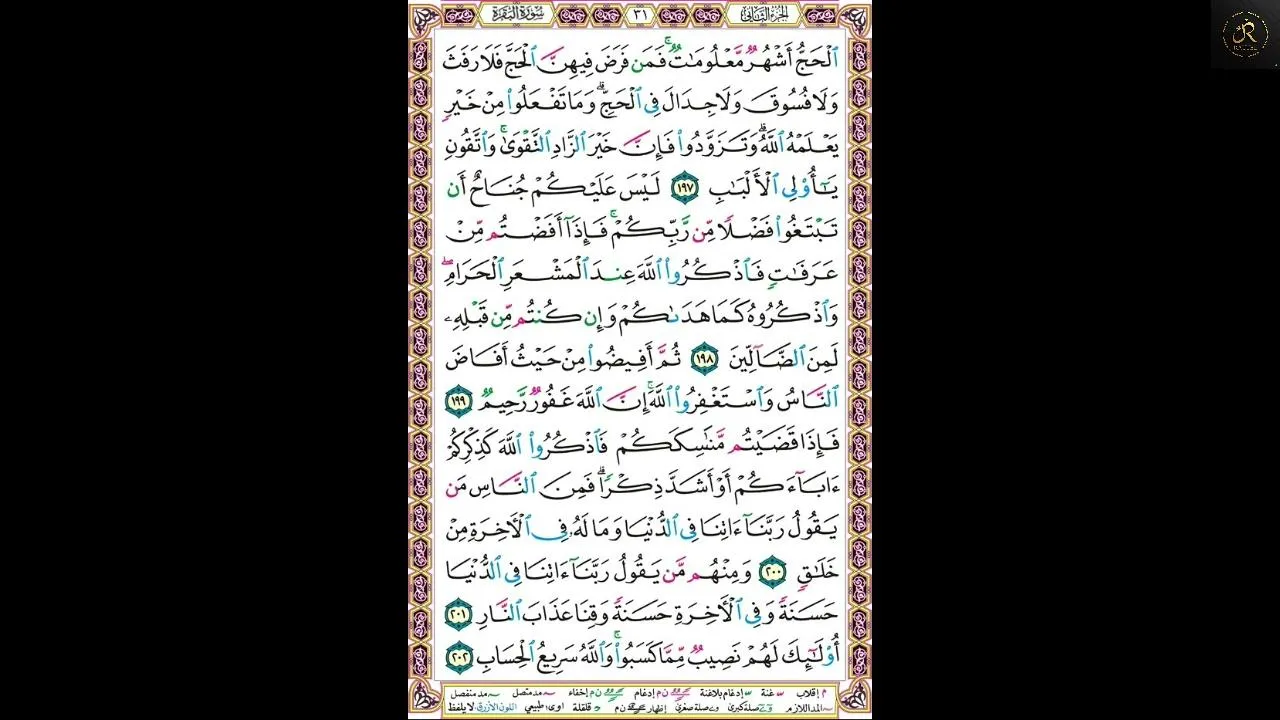 الجزء الثاني ٣١ سورة البقرة
ٱلْحَجُّ أَشْهُرٌ مَّعْلُومَٰتٌ ۚ فَمَن فَرَضَ فِيهِنَّ ٱلْحَجَّ فَلَا رَفَثَ
وَلَا فُسُوقَ وَلَا جِدَالَ فِى ٱلْحَجِّ ۗ وَمَا تَفْعَلُوا۟ مِنْ خَيْرٍ
يَعْلَمْهُ ٱللَّهُ ۗ وَتَزَوَّدُوا۟ فَإِنَّ خَيْرَ ٱلزَّادِ ٱلتَّقْوَىٰ ۚ وَٱتَّقُونِ
يَٰٓأُو۟لِى ٱلْأَلْبَٰبِ ١٩٧ لَيْسَ عَلَيْكُمْ جُنَاحٌ أَن
تَبْتَغُوا۟ فَضْلًا مِّن رَّبِّكُمْ ۚ فَإِذَآ أَفَضْتُم مِّنْ
عَرَفَٰتٍ فَٱذْكُرُوا۟ ٱللَّهَ عِندَ ٱلْمَشْعَرِ ٱلْحَرَامِ ۖ
وَٱذْكُرُوهُ كَمَا هَدَىٰكُمْ وَإِن كُنتُم مِّن قَبْلِهِۦ
لَمِنَ ٱلضَّآلِّينَ ١٩٨ ثُمَّ أَفِيضُوا۟ مِنْ حَيْثُ أَفَاضَ
ٱلنَّاسُ وَٱسْتَغْفِرُوا۟ ٱللَّهَ ۚ إِنَّ ٱللَّهَ غَفُورٌ رَّحِيمٌ ١٩٩
فَإِذَا قَضَيْتُم مَّنَٰسِكَكُمْ فَٱذْكُرُوا۟ ٱللَّهَ كَذِكْرِكُمْ
ءَابَآءَكُمْ أَوْ أَشَدَّ ذِكْرًا ۗ فَمِنَ ٱلنَّاسِ مَن
يَقُولُ رَبَّنَآ ءَاتِنَا فِى ٱلدُّنْيَا وَمَا لَهُۥ فِى ٱلْأَخِرَةِ مِنْ
خَلَٰقٍ ٢٠٠ وَمِنْهُم مَّن يَقُولُ رَبَّنَآ ءَاتِنَا فِى ٱلدُّنْيَا
حَسَنَةً وَفِى ٱلْأَخِرَةِ حَسَنَةً وَقِنَا عَذَابَ ٱلنَّارِ ٢٠١
أُو۟لَٰٓئِكَ لَهُمْ نَصِيبٌ مِّمَّا كَسَبُوا۟ ۚ وَٱللَّهُ سَرِيعُ ٱلْحِسَابِ ٢٠٢
م إقلاب غنة إدغام بلاغنة ن م إدغام ن م إخفاء مد متصل مد منفصل
المد اللازم صلة كبرى صلة صغرى إظهار ن م قلقلة اوى: طبيعي اللون الأزرق لا يلفظ